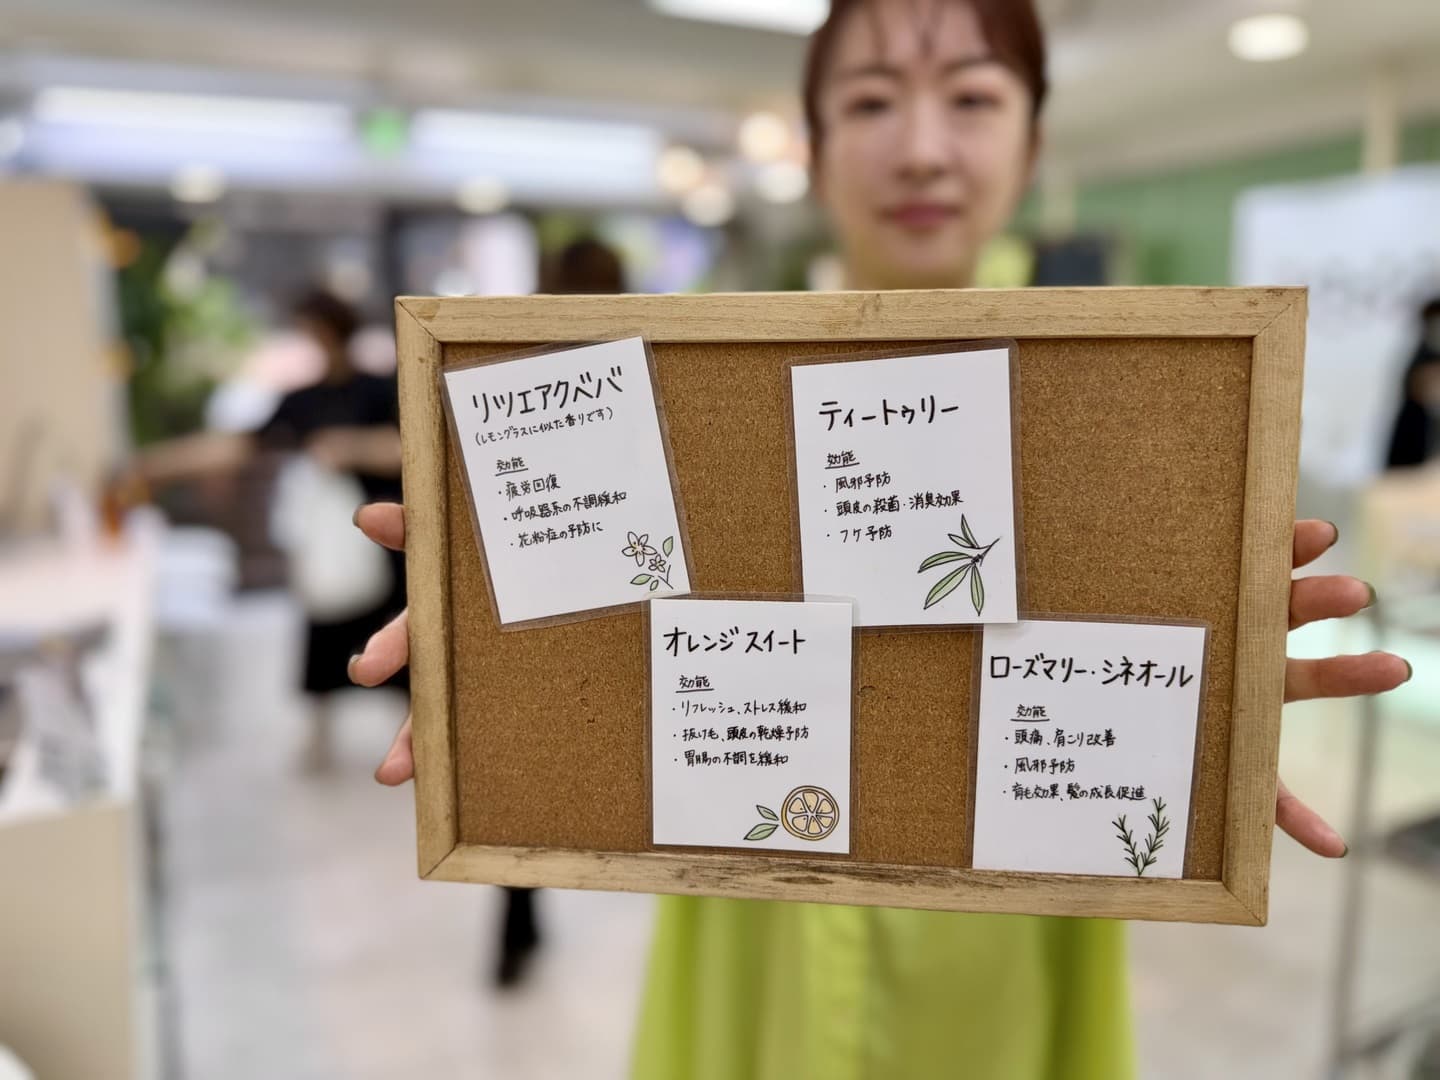 リツエアクベバ
(レモングラスに似た香りです)
効能
・疲労回復
・呼吸器系の不調緩和
・花粉症の予防に
ティートゥリー
効能
・風邪予防
・頭皮の殺菌・消臭効果
・フケ予防
オレンジスイート
効能
・リフレッシュ、ストレス緩和
・抜け毛、頭皮の乾燥予防
・胃腸の不調を緩和
ローズマリー・シネオール
効能
・頭痛、肩こり改善
・風邪予防
・育毛効果、髪の成長促進